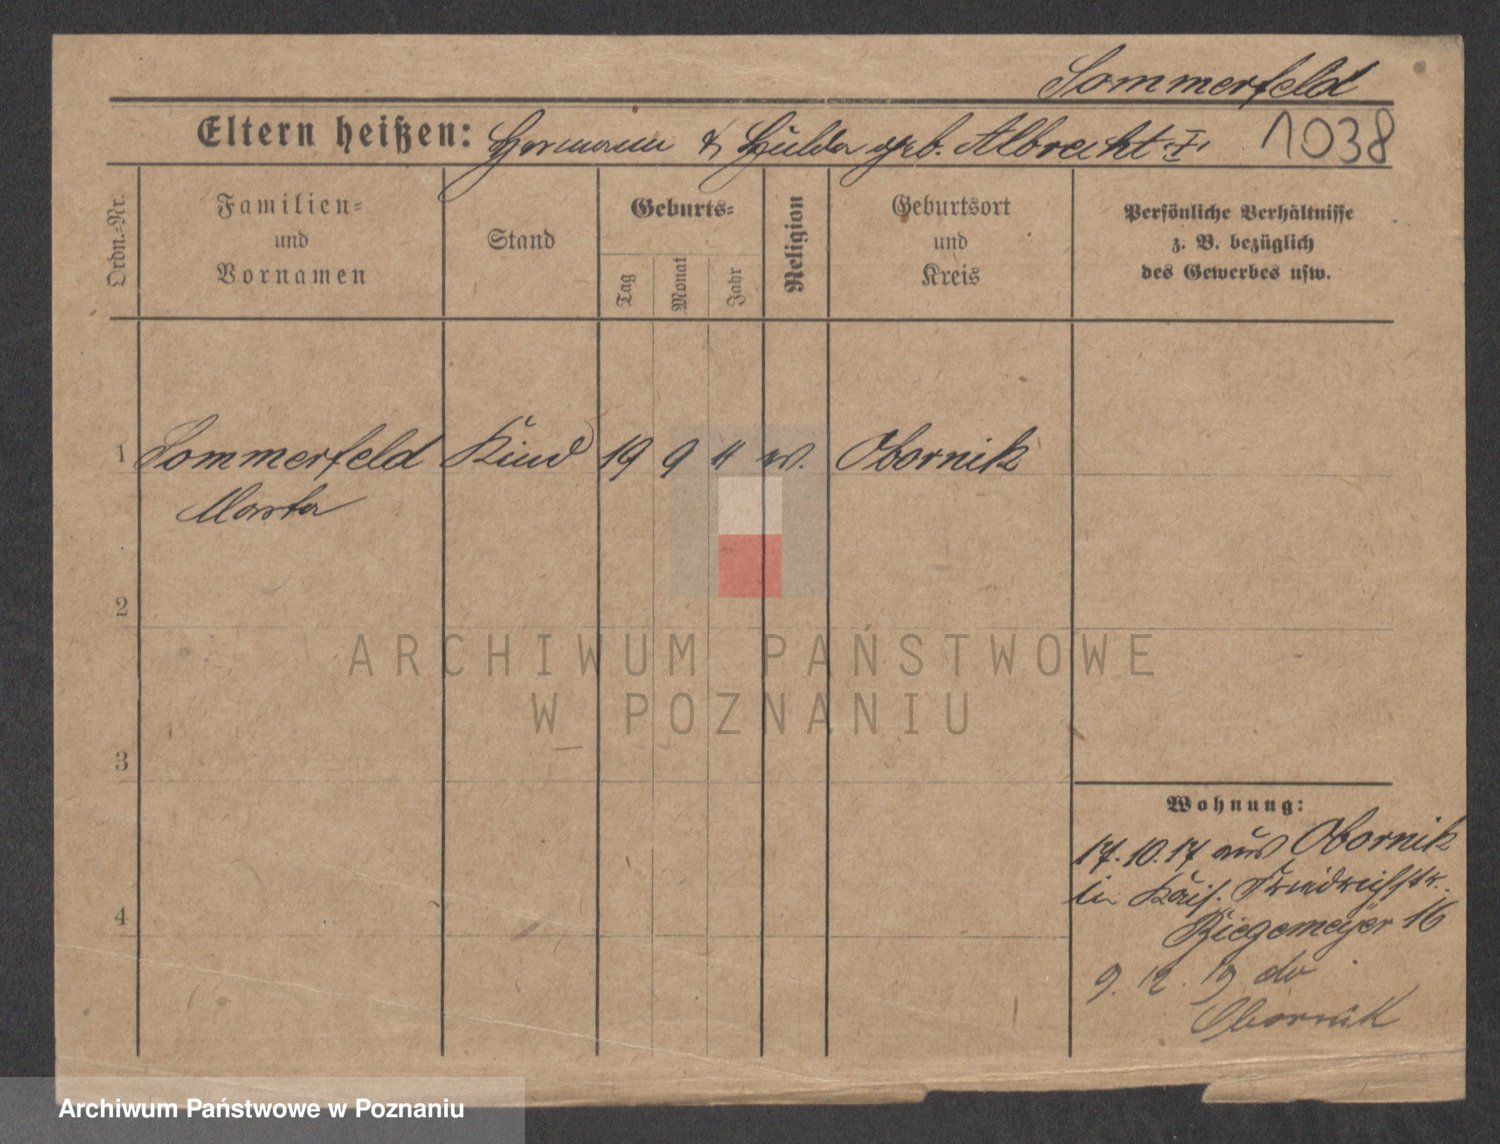 Sommerfeld
Eltern heißen: Hermann & Hulda geb. Albrecht †.
1038
Ordn.-Nr.
Familien-
und
Vornamen
Stand
Geburts-
Tag
Monat
Jahr
Religion
Geburtsort
und
Kreis
Persönliche Verhältnisse
z. B. bezüglich
des Gewerbes usw.
1 Sommerfeld Kind 19 9 11 ev. Obornik
Marta
2
3
4
Wohnung:
17.10.17 aus Obornik
in Kais. Friedrichstr.
Ziegemeyer 16
9. 12. 19
Obornik
ARCHIWUM PAŃSTWOWE
W POZNANIU
Archiwum Państwowe w Poznaniu